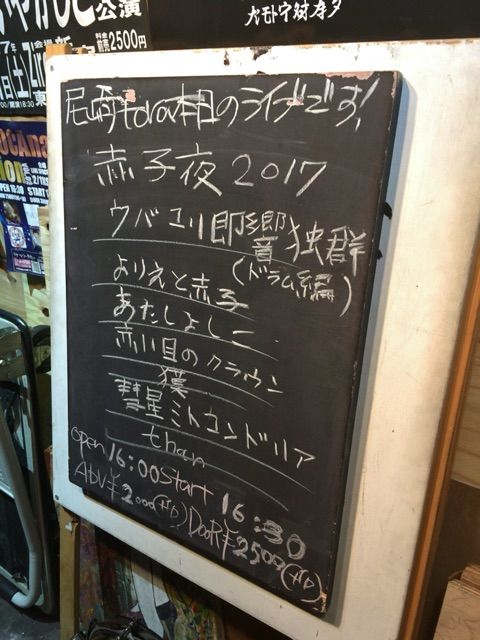 公演
料金 前売2500円
尼崎tora本日のライブです!
赤子夜2017
ウバユリ即郷音独群
(ドラム編)
よりえと赤子
あたしよしこ
赤い目のクラウン
獏
彗星ミトコンドリア
than
open 16:00 start 16:30
ADV¥2000(+D) DOOR¥2500(+D)